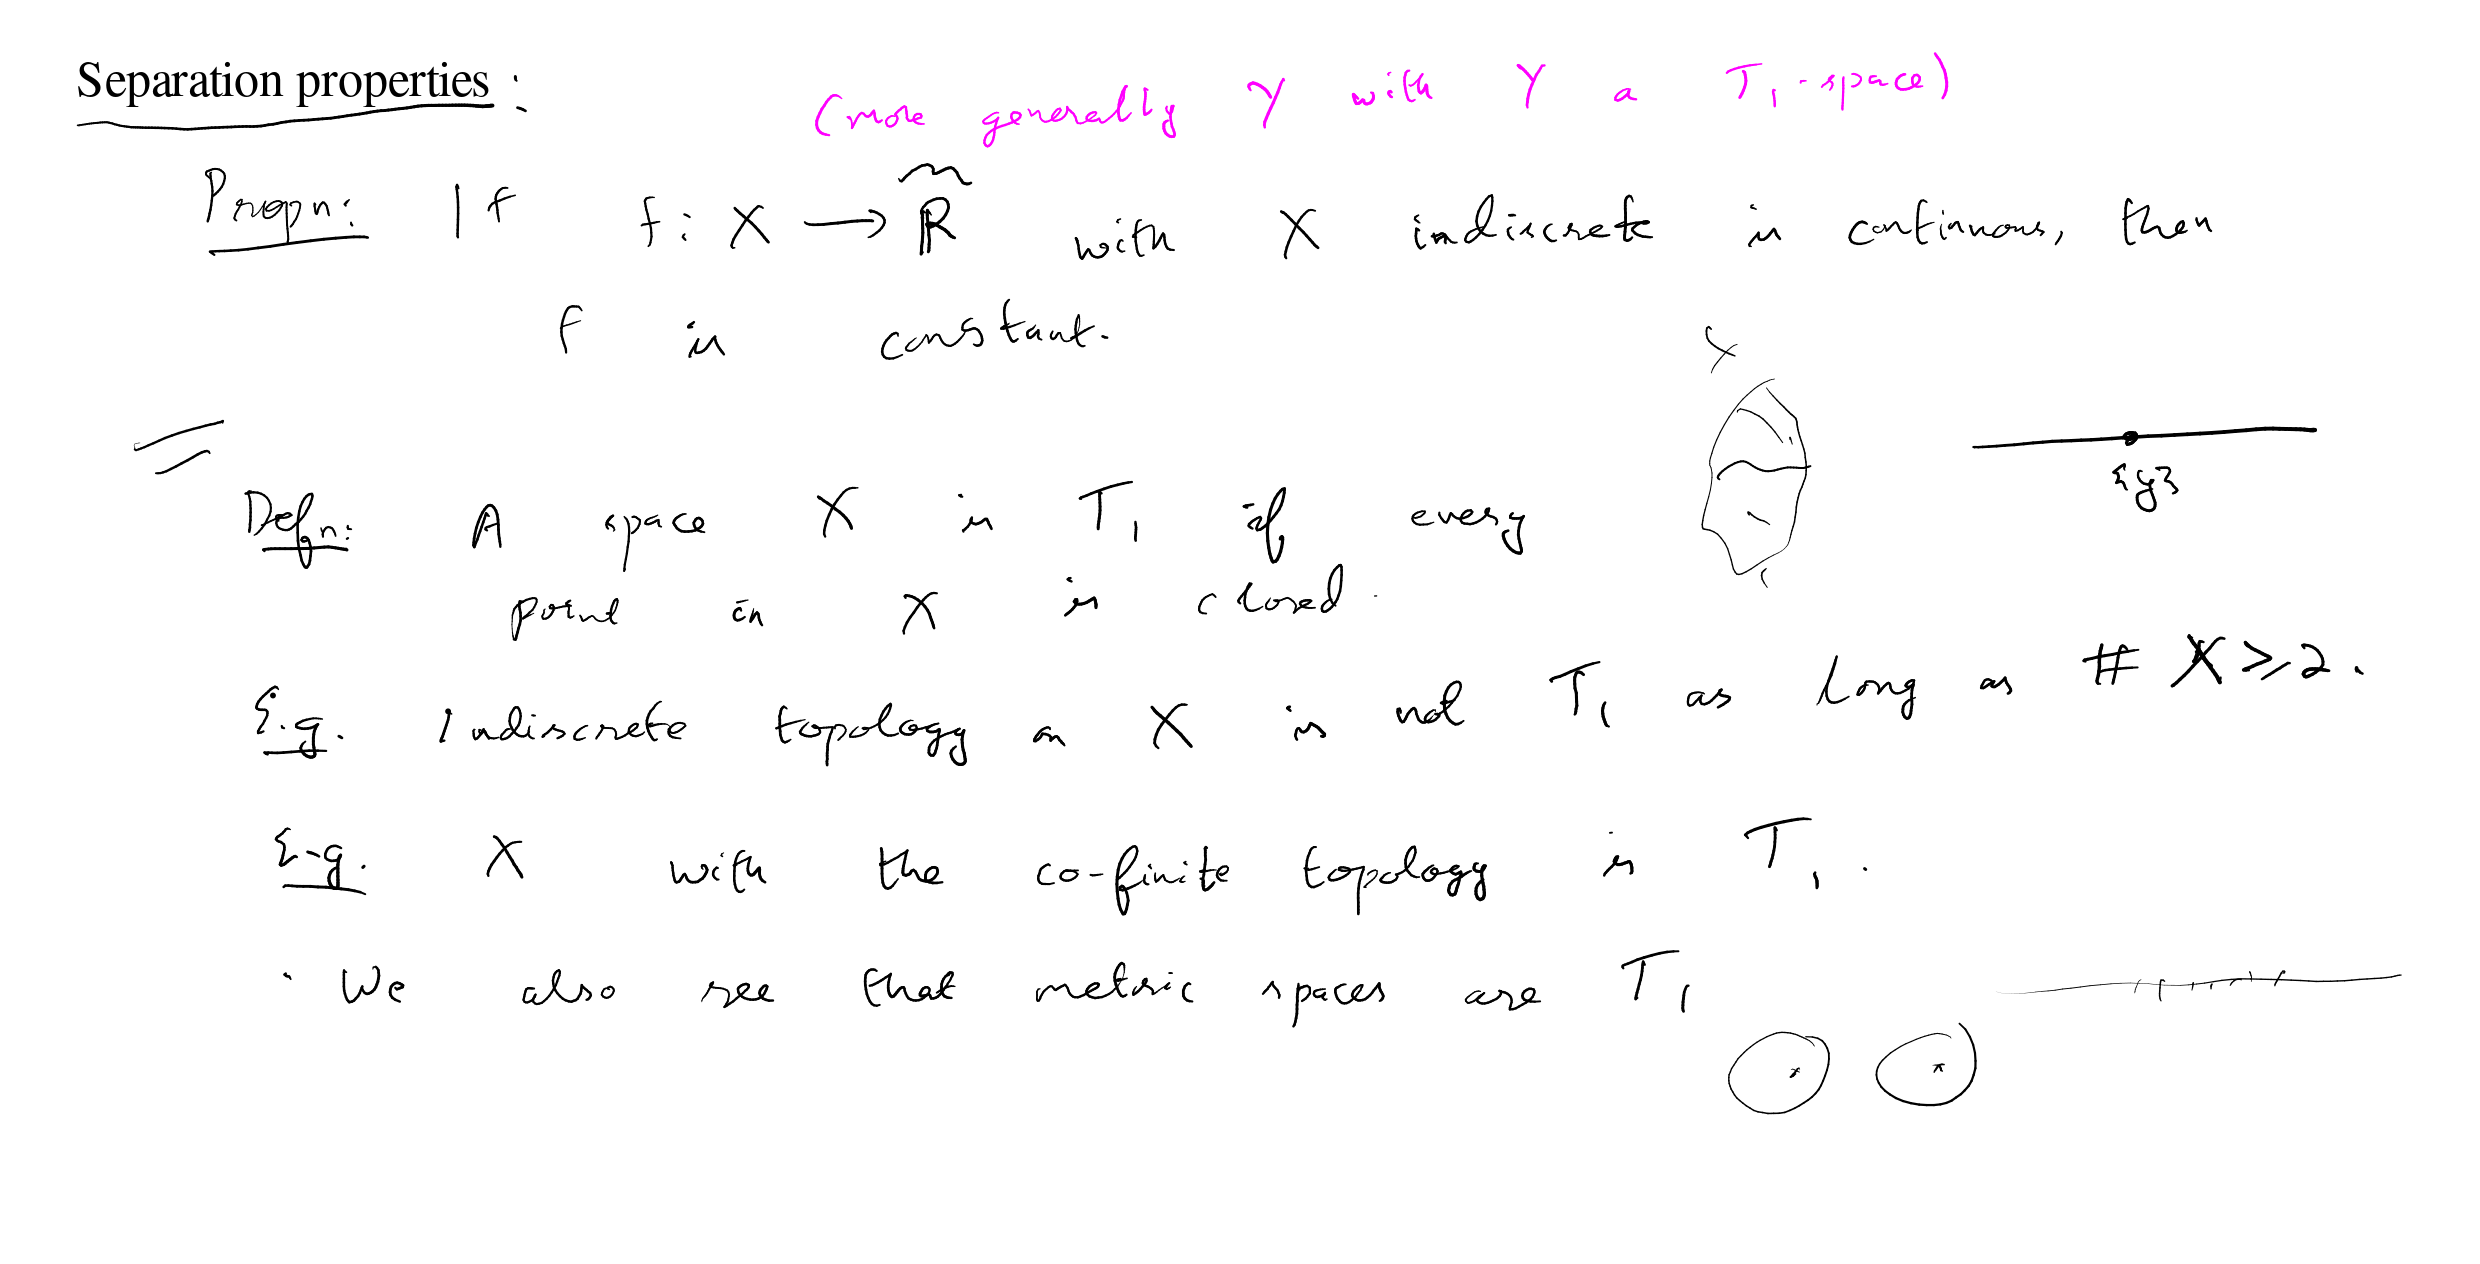 Separation properties :
(more generally Y with Y a T₁-space)
Propn: If f: X → ℝ with X indiscrete is continuous, then
f is constant.
X
{y}
Defn: A space X is T₁ if every
point in X is closed.
E.g. Indiscrete topology on X is not T₁ as long as # X ≥ 2.
E.g. X with the co-finite topology is T₁.
· We also see that metric spaces are T₁